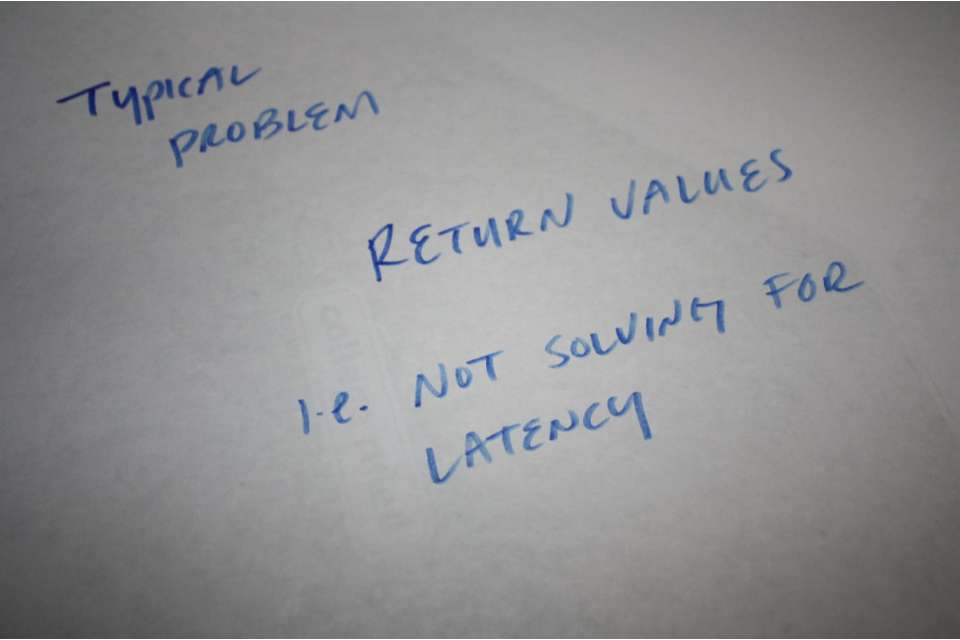 TYPICAL
PROBLEM
RETURN VALUES
i.e. NOT SOLVING FOR
LATENCY